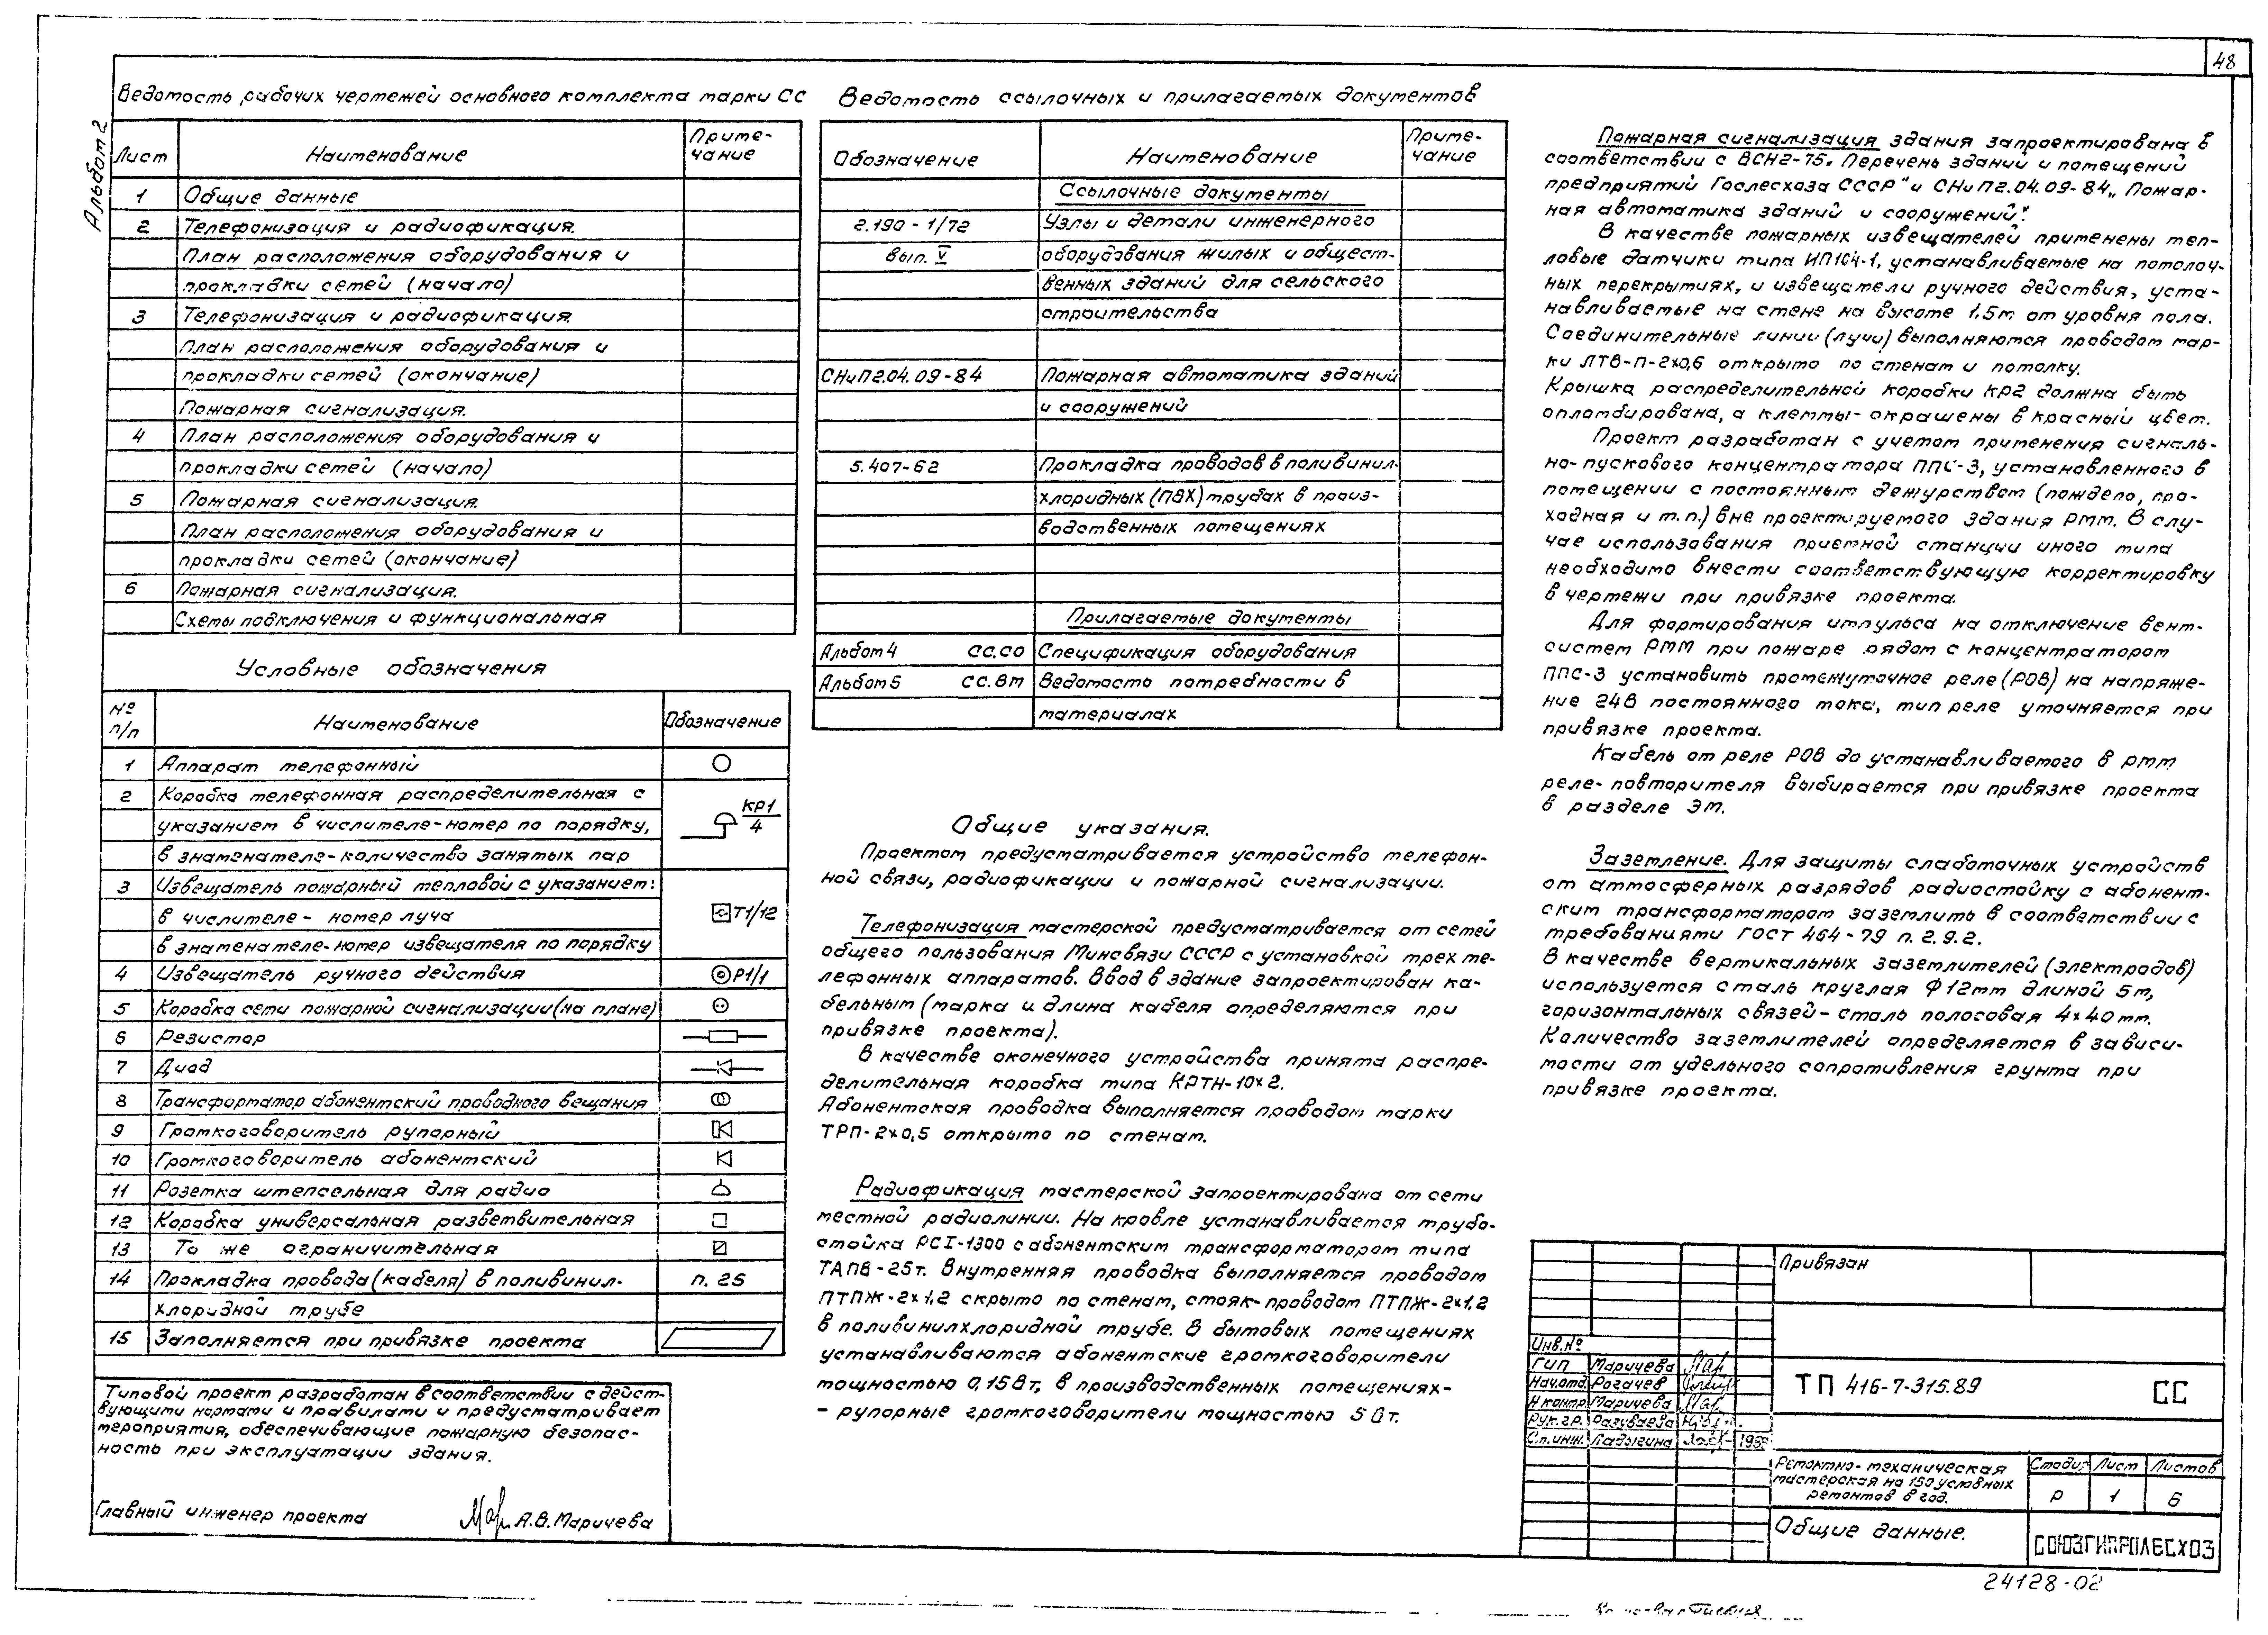 48
Альбом 2
Ведомость рабочих чертежей основного комплекта марки СС
Лист Наименование Приме-
чание
1 Общие данные
2 Телефонизация и радиофикация.
План расположения оборудования и
прокладки сетей (начало)
3 Телефонизация и радиофикация
План расположения оборудования и
прокладки сетей (окончание)
Пожарная сигнализация.
4 План расположения оборудования и
прокладки сетей (начало)
5 Пожарная сигнализация.
План расположения оборудования и
прокладки сетей (окончание)
6 Пожарная сигнализация.
Схемы подключения и функциональная
Условные обозначения
№
п/п Наименование Обозначение
1 Аппарат телефонный
2 Коробка телефонная распределительная с
указанием в числителе-номер по порядку,
в знаменателе-количество занятых пар
КР1
4
3 Извещатель пожарный тепловой с указанием:
в числителе - номер луча
в знаменателе-номер извещателя по порядку
Т1/12
4 Извещатель ручного действия Р1/1
5 Коробка сети пожарной сигнализации (на плане)
6 Резистор
7 Диод
8 Трансформатор абонентский проводного вещания
9 Громкоговоритель рупорный
10 Громкоговоритель абонентский
11 Розетка штепсельная для радио
12 Коробка универсальная разветвительная
13 То же ограничительная
14 Прокладка провода (кабеля) в поливинил- п. 25
хлоридной трубе
15 Заполняется при привязке проекта
Типовой проект разработан в соответствии с дейст-
вующими нормами и правилами и предусматривает
мероприятия, обеспечивающие пожарную безопас-
ность при эксплуатации здания.
Главный инженер проекта А.В. Маричева
Ведомость ссылочных и прилагаемых документов
Обозначение Наименование Приме-
чание
Ссылочные документы
2.190 - 1/72 Узлы и детали инженерного
вып. V оборудования жилых и общест-
венных зданий для сельского
строительства
СНиП2.04.09-84 Пожарная автоматика зданий
и сооружений
5.407-62 Прокладка проводов в поливинил-
хлоридных (ПВХ) трубах в произ-
водственных помещениях
Прилагаемые документы
Альбом 4 СС.СО Спецификация оборудования
Альбом 5 СС.ВМ Ведомость потребности в
материалах
Общие указания.
Проектом предусматривается устройство телефон-
ной связи, радиофикации и пожарной сигнализации.
Телефонизация мастерской предусматривается от сетей
общего пользования Минсвязи СССР с установкой трех те-
лефонных аппаратов. Ввод в здание запроектирован ка-
бельным (марка и длина кабеля определяются при
привязке проекта).
В качестве оконечного устройства принята распре-
делительная коробка типа КРТН-10х2.
Абонентская проводка выполняется проводом марки
ТРП-2х0,5 открыто по стенам.
Радиофикация мастерской запроектирована от сети
местной радиолинии. На кровле устанавливается трубо-
стойка РСI-1300 с абонентским трансформатором типа
ТАПВ-25т. Внутренняя проводка выполняется проводом
ПТПЖ-2х1,2 скрыто по стенам, стояк-проводом ПТПЖ-2х1,2
в поливинилхлоридной трубе. В бытовых помещениях
устанавливаются абонентские громкоговорители
мощностью 0,15Вт, в производственных помещениях-
- рупорные громкоговорители мощностью 5 Вт.
Пожарная сигнализация здания запроектирована в
соответствии с ВСН2-75„ Перечень зданий и помещений
предприятий Гослесхоза СССР" и СНиП2.04.09-84„ Пожар-
ная автоматика зданий и сооружений".
В качестве пожарных извещателей применены теп-
ловые датчики типа ИП104-1, устанавливаемые на потолоч-
ных перекрытиях, и извещатели ручного действия, уста-
навливаемые на стене на высоте 1,5м от уровня пола.
Соединительные линии (лучи) выполняются проводом мар-
ки ЛТВ-П-2х0,6 открыто по стенам и потолку.
Крышка распределительной коробки КР2 должна быть
опломбирована, а клеммы-окрашены в красный цвет.
Проект разработан с учетом применения сигналь-
но-пускового концентратора ППС-3, установленного в
помещении с постоянным дежурством (пождепо, про-
ходная и т.п.) вне проектируемого здания РММ. В слу-
чае использования приемной станции иного типа
необходимо внести соответствующую корректировку
в чертежи при привязке проекта.
Для формирования импульса на отключение вент-
систем РММ при пожаре рядом с концентратором
ППС-3 установить промежуточное реле (РОВ) на напряже-
ние 24В постоянного тока, тип реле уточняется при
привязке проекта.
Кабель от реле РОВ до устанавливаемого в РММ
реле-повторителя выбирается при привязке проекта
в разделе ЭМ.
Заземление. Для защиты слаботочных устройств
от атмосферных разрядов радиостойку с абонент-
ским трансформатором заземлить в соответствии с
требованиями ГОСТ 464-79 п. 2.9.2.
В качестве вертикальных заземлителей (электродов)
используется сталь круглая Ф12мм длиной 5м,
горизонтальных связей-сталь полосовая 4х40мм.
Количество заземлителей определяется в зависи-
мости от удельного сопротивления грунта при
привязке проекта.
Привязан
Инв.№
ГИП Маричева
Нач.отд. Рогачев
Н.контр. Маричева
Рук.гр. Разуваева
Ст.инж. Ладыгина
ТП 416-7-315.89 СС
Ремонтно-механическая
мастерская на 150 условных
ремонтов в год.
Стадия Лист Листов
Р 1 6
Общие данные.
СОЮЗГИПРОЛЕСХОЗ
24128-02